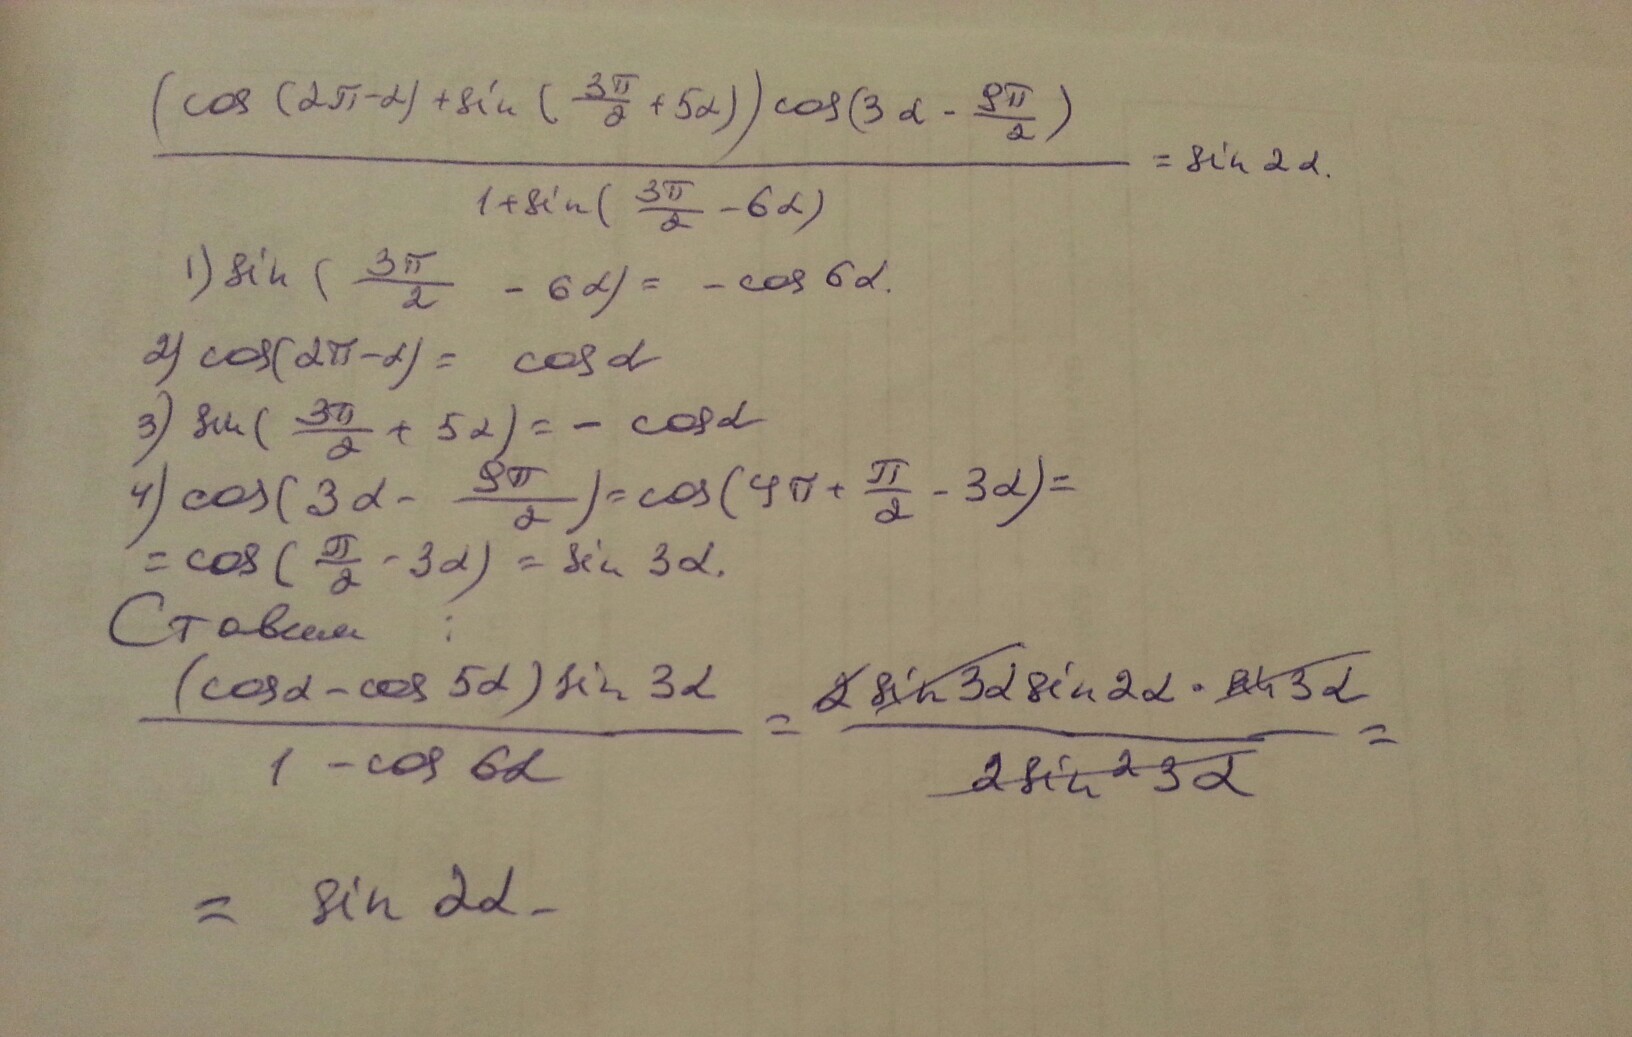 (cos (2π-α) + sin (3π/2 + 5α)) cos(3α - 9π/2) / 1 + sin(3π/2 - 6α) = sin 2α.
1) sin (3π/2 - 6α) = - cos 6α.
2) cos(2π-α) = cos α
3) sin(3π/2 + 5α) = - cosα
4) cos(3α - 9π/2) = cos(4π + π/2 - 3α) =
= cos(π/2 - 3α) = sin 3α.
Ставим :
(cosα - cos 5α) sin 3α / 1 - cos 6α = 2 sin 3α sin 2α · sin 3α / 2 sin² 3α =
= sin 2α -